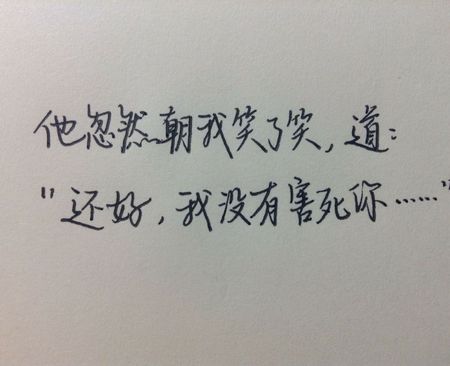 他忽然朝我笑了笑，道：
"还好，我没有害死你……"